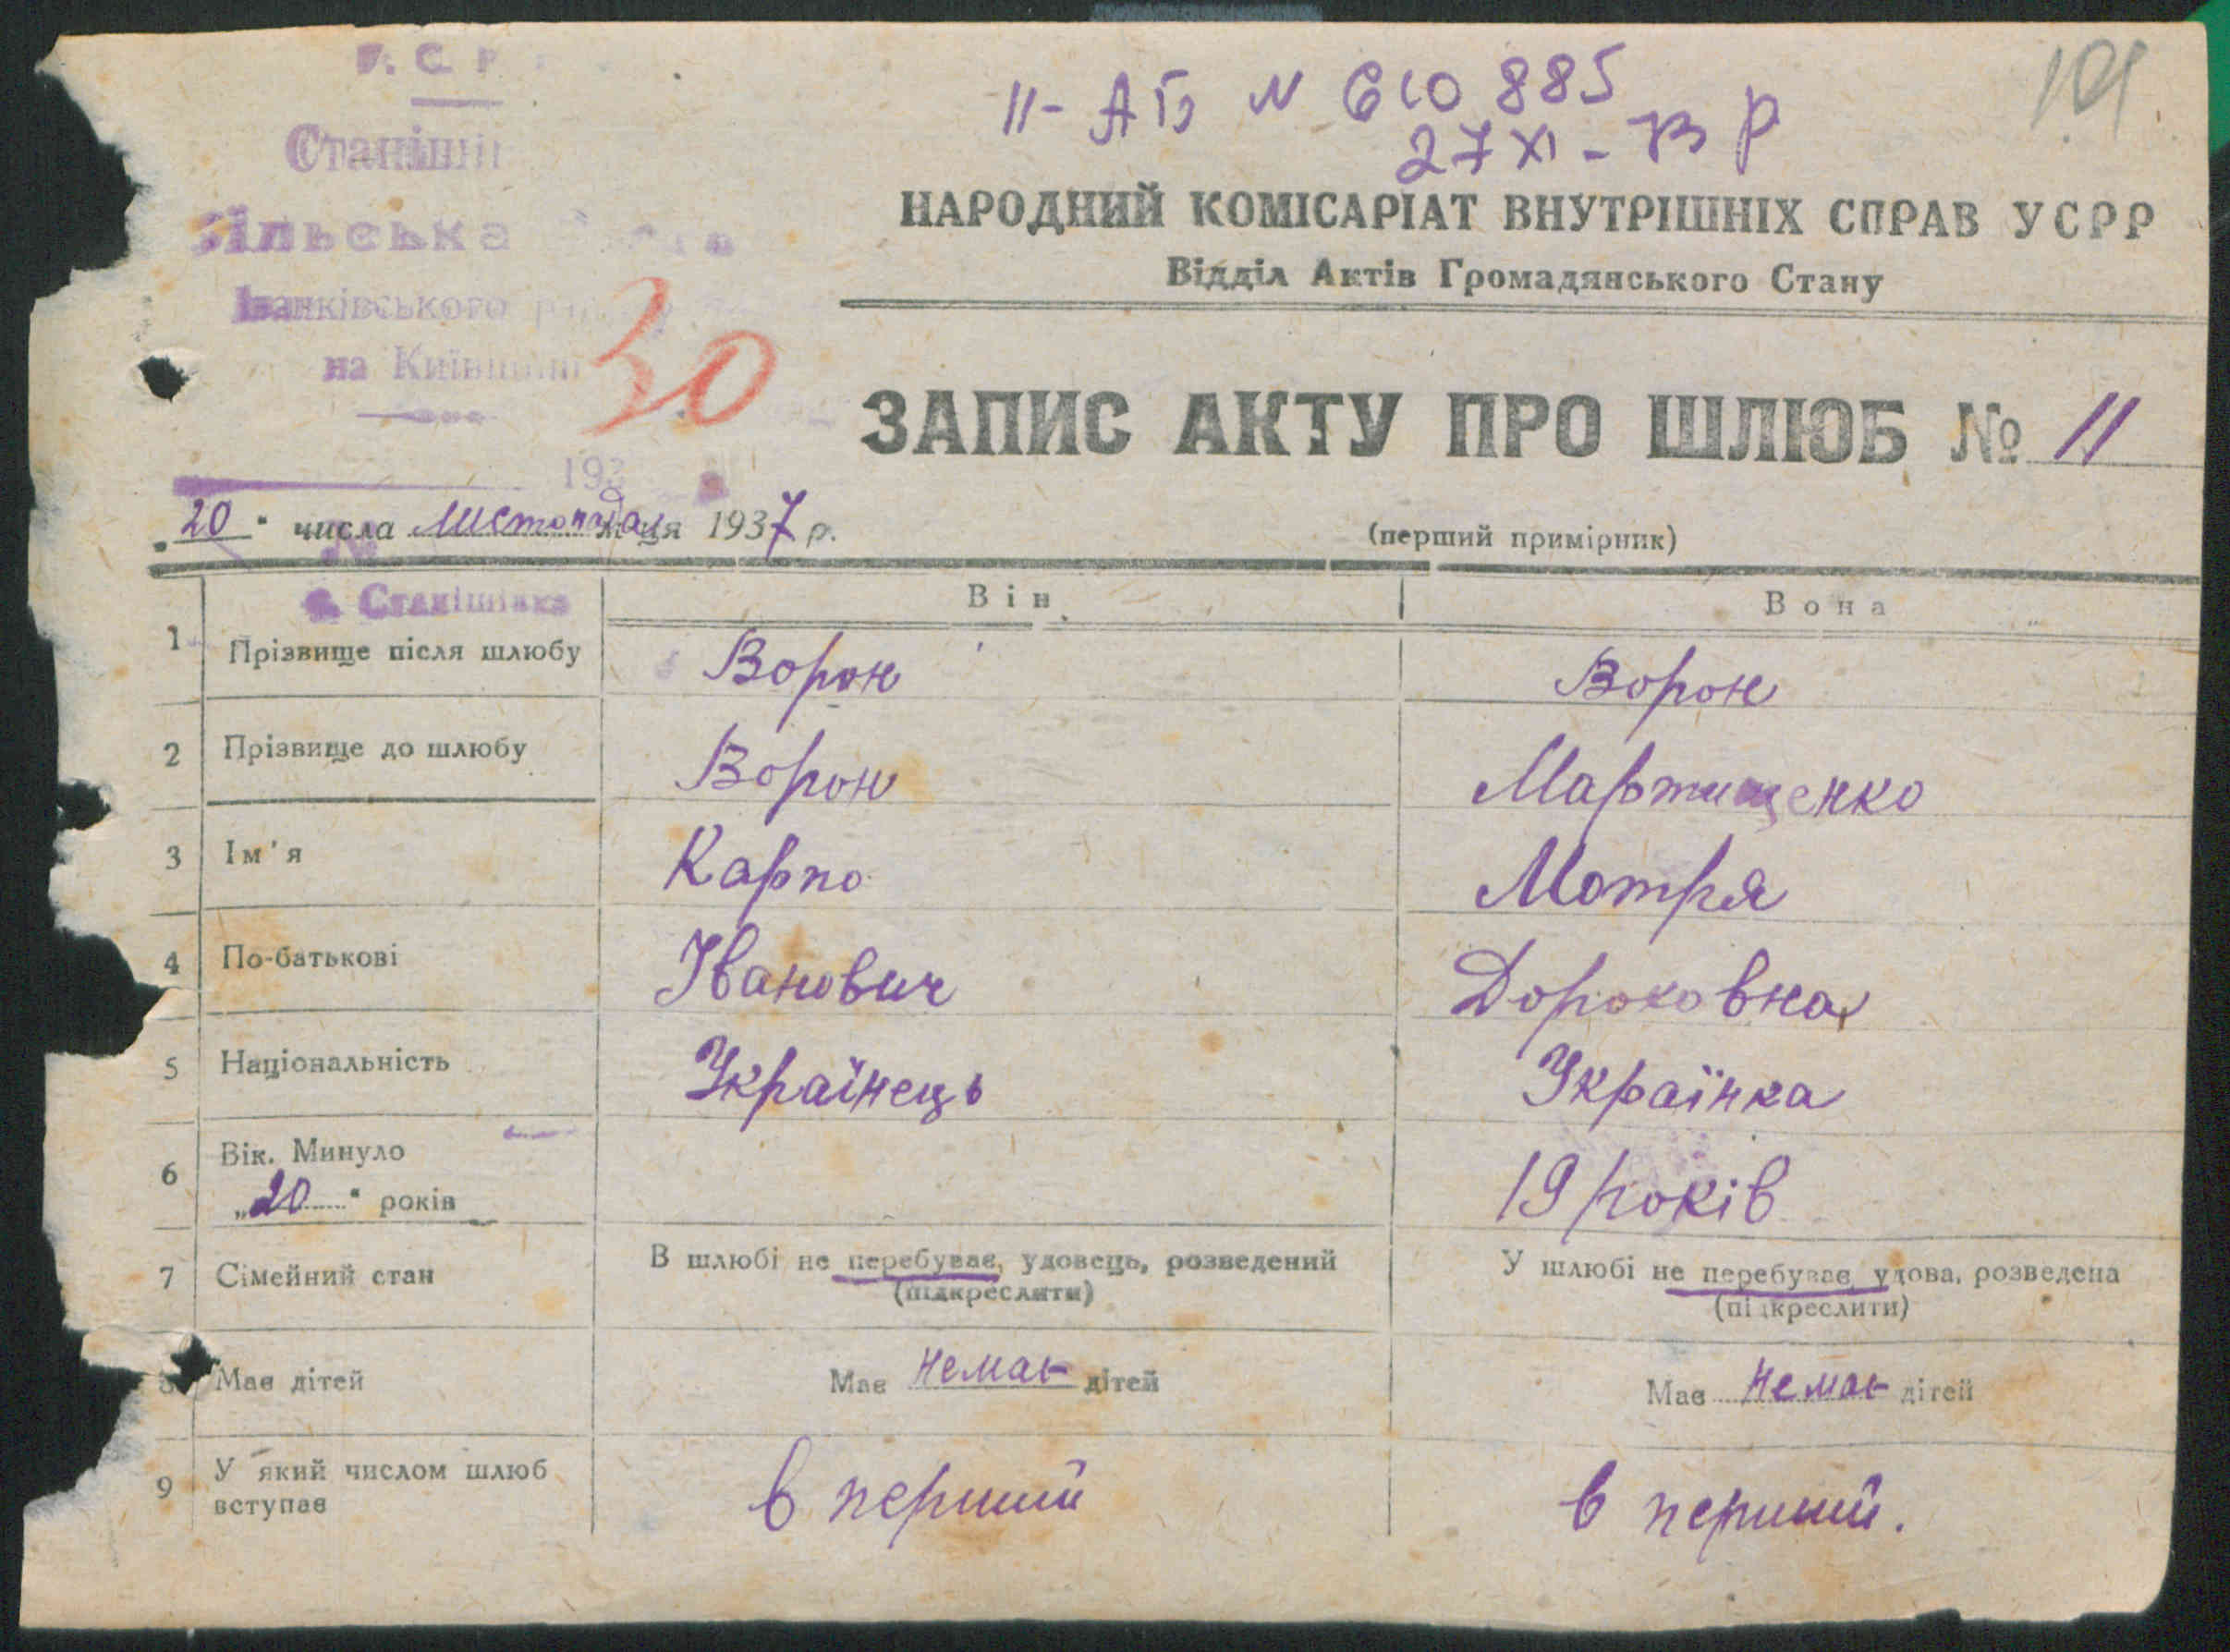 Сільська
на Київщині
30
193
II - АБ N 610885
27 XI - 73 р
101
НАРОДНИЙ КОМІСАРІАТ ВНУТРІШНІХ СПРАВ УСРР
Відділ Актів Громадянського Стану
ЗАПИС АКТУ ПРО ШЛЮБ № 11
"20" числа листопада м-ця 1937 р.
(перший примірник)
с. Станішівка
Він Вона
1 Прізвище після шлюбу Ворон Ворон
2 Прізвище до шлюбу Ворон Мартищенко
3 Ім'я Карпо Мотря
4 По-батькові Іванович Дороховна
5 Національність Українець Українка
6 Вік. Минуло
„20" років 19 років
7 Сімейний стан В шлюбі не перебуває, удовець, розведений У шлюбі не перебуває, удова, розведена
(підкреслити) (підкреслити)
8 Має дітей Має немає дітей Має немає дітей
9 У який числом шлюб
вступає в перший в перший.